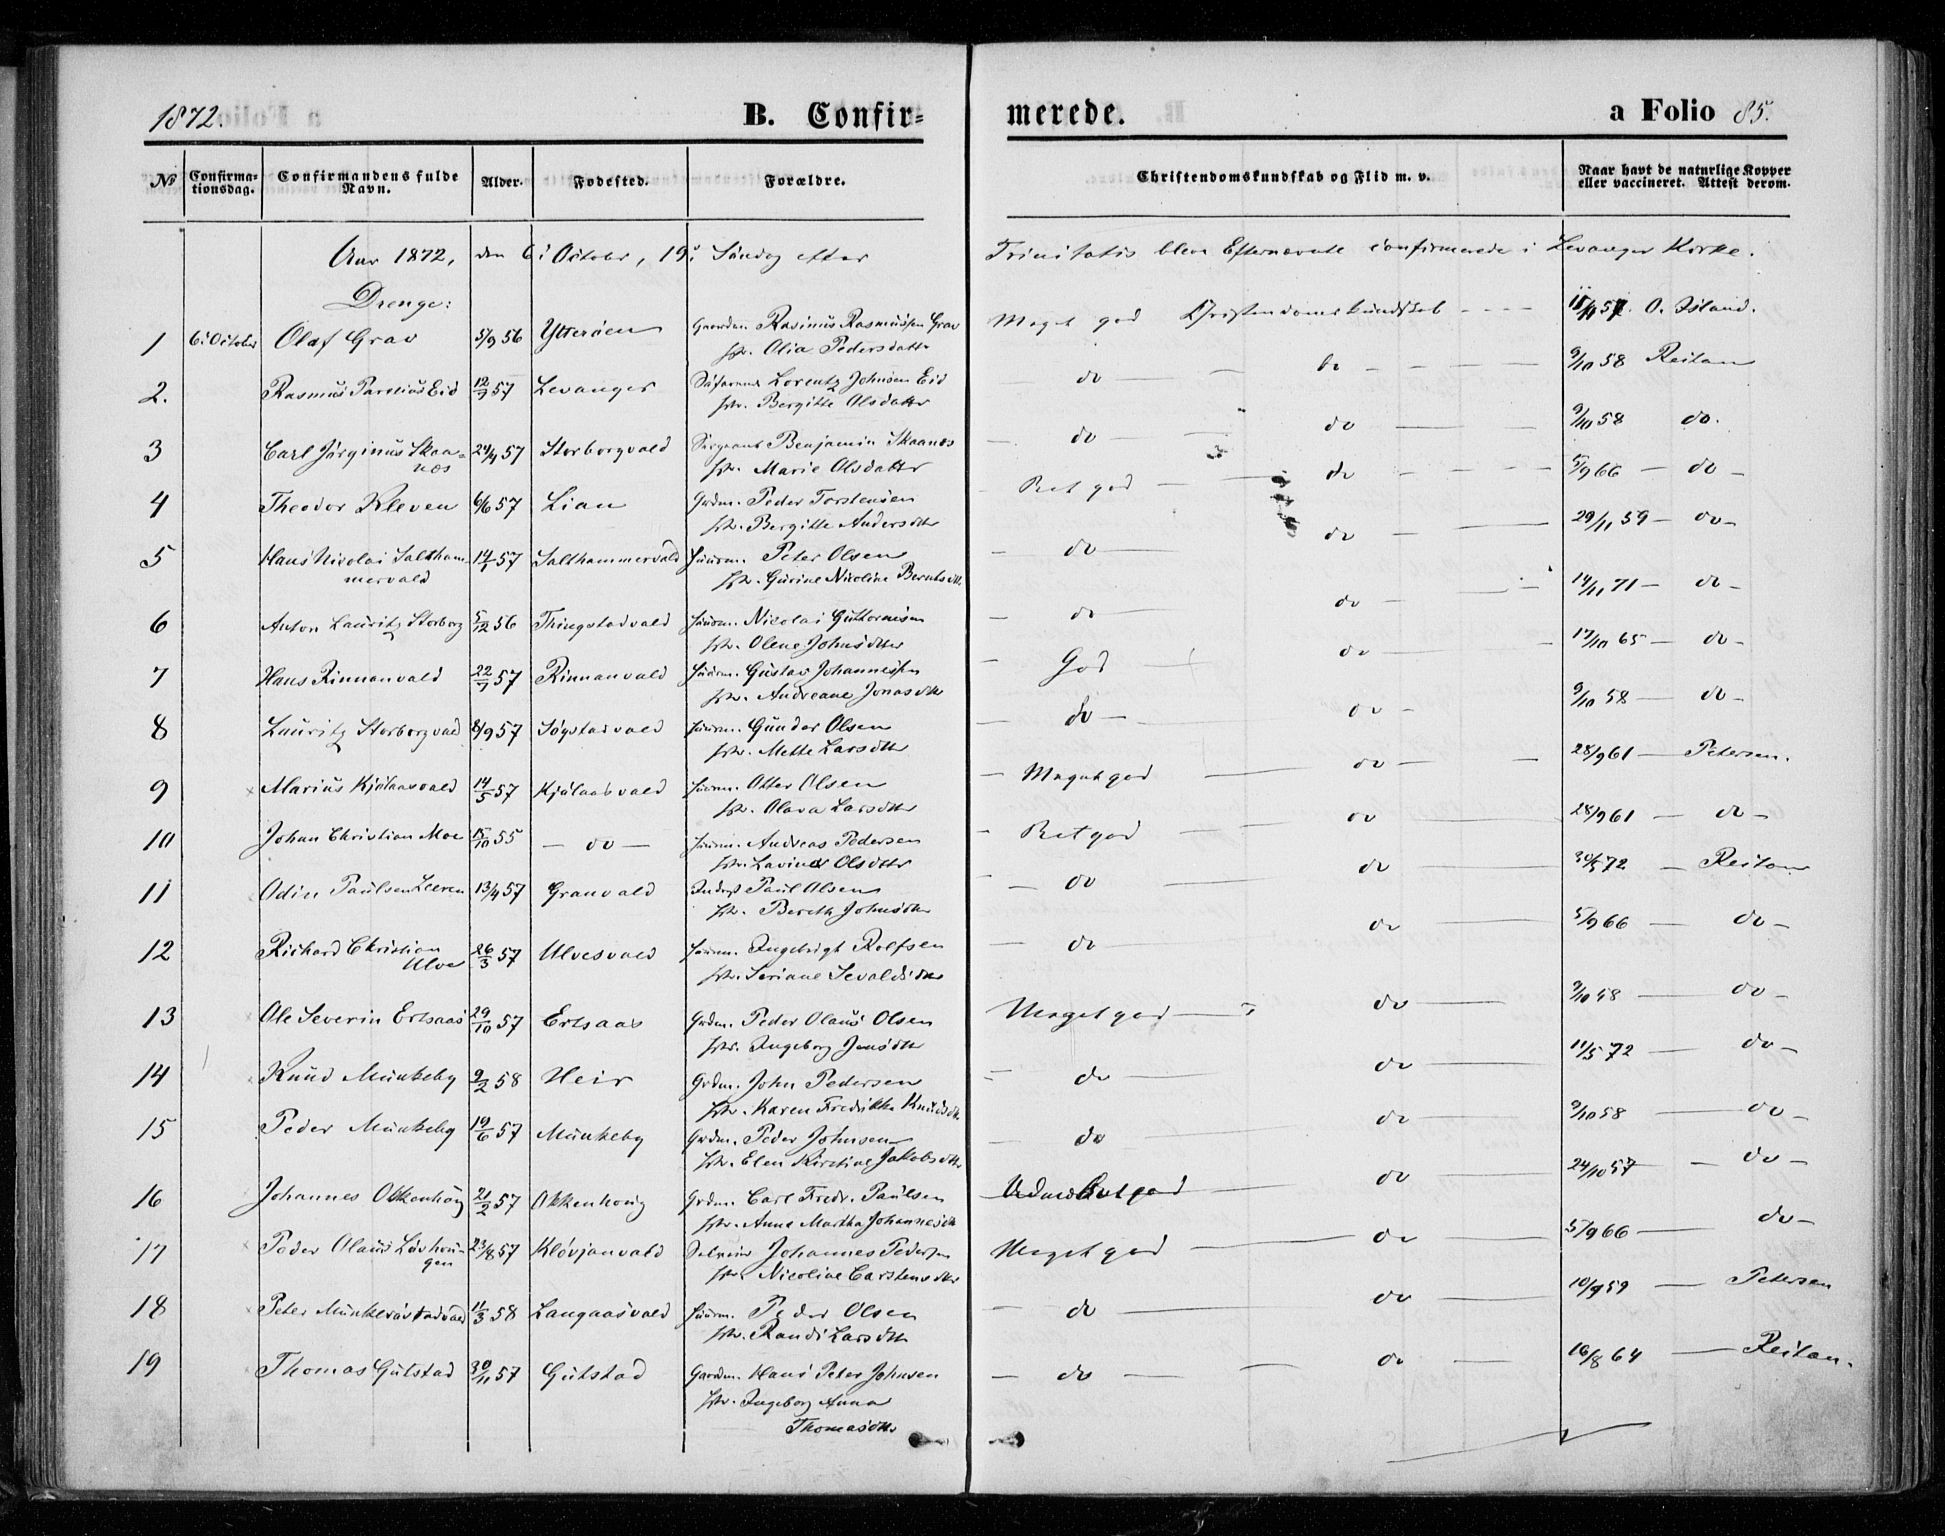 1872. B. Confir= merede. a Folio 85.
No Confirma-tionsdag. Confirmandens fulde Navn. Alder. Fødested. Forældre. Christendomskundskab og Flid m. v. Naar havt de naturlige Kopper eller vaccineret. Attest derom.
Aar 1872, den 6: October, 19: Søndag efter Trinitatis bleve Efternævnte confirmerede i Levanger Kirke.
Drenge:
1 6: October Olaf Grav 5/9 56 Ytterøen Gaardm. Rasinus Rasmussen Grav Meget god Christendomskundskab - - - - 57 O. Island.
Olia Pedersdatter
2. Rasmus Parelius Eid 12/9 57 Levanger Søfarende Lorentz Johnsen Eid — do — do - - - 9/10 58 Reitan
Bergitte Olsdatter
3 Carl Jørginus Skaa= 24/4 57 Storborgvald Sergeant Benjamin Skaanes — do — do — 9/10 58 do.
nes Marie Olsdatter
4 Theodor Kleven 6/6 57 Lian Grdm. Peder Torstensen Ret god — do — 5/9 66 — do —
Bergitte Andersdtr
5 Hans Nicolai Saltham= 14/1 57 Salthammervald Huusm. Peter Olsen — do — do — 29/11 59 — do —
mervald Gurine Nicoline Berntsdtr
6 Anton Lauritz Storborg 5/12 56 Thingstadvald Huusm. Nicolai Guttormsen — do — do — 14/11 71 — do —
Olene Johnsdtr
7 Hans Rinnanvald 22/7 57 Rinnanvald Huusm. Gustav Johannessen — God — do — 17/10 65 — do —
Andreane Jonasdtr
8 Lauritz Storborgvald 8/9 57 Søgstadvald Huusm. Gunder Olsen — do — do — 9/10 58 — do —
Mette Larsdtr
9 Marius Kjølaasvald 14/5 57 Kjølaasvald Huusm. Otter Olsen — Meget god — do — 28/9 61 — Petersen.
Olava Larsdtr
10 Johan Christian Moe 15/10 55 — do — Huusm. Andreas Pedersen — Ret god — do 28/9 61 — do —
Lavina Olsdtr
11 Odin Paulsen Leeren 13/4 57 Granvald Inderst Paul Olsen — do — do 30/5 72 — Reitan
Bereth Johnsdtr
12 Richard Christian 26/3 57 Ulvesvald Huusm. Ingebrigt Rolfsen — do — do — 5/9 66 — do —
Ulve Seriane Sevaldsdtr
13 Ole Severin Ertsaas 29/10 57 Ertsaas Grdm. Peder Olaus Olsen Meget god — do — 9/10 58 — do —
Ingeborg Jensdtr
14 Knud Munkeby 9/2 58 Heir Grdm. John Pedersen — do — do — 11/5 72 — do —
Karen Fredrikke Knudsdtr
15 Peder Munkeby 19/6 57 Munkeby Grdm. Peder Johnsen — do — do — 9/10 58 — do —
Elen Kirstine Jakobsdtr
16 Johannes Okkenhoug 21/2 57 Okkenhoug Grdm. Carl Fredr. Paulsen god — do — 24/10 57 — do —
Anne Martha Johannesdtr
17 Peder Olaus Løvhou= 23/8 57 Kløvjanvald Selveier Johannes Pedersen Meget god — do — 5/9 66 — do —
gen Nicoline Carstensdtr
18 Peter Munkerøstadvald 11/3 58 Langaasvald Huusm. Peder Olsen — do — do — 10/9 59 — Petersen
Randi Larsdtr
19 Thomas Gulstad 30/11 57 Gulstad Gaardm. Hans Peter Johnsen — do — do — 16/8 64 — Reitan.
Ingeborg Anna
Thomasdtr